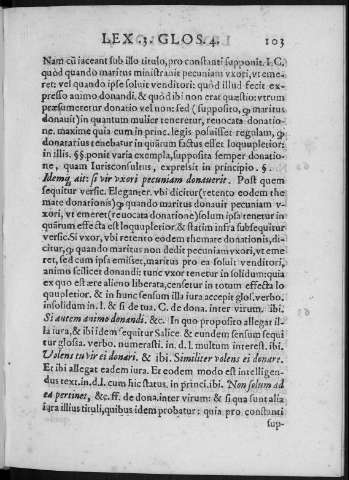 LEX .3. GLOS. 4. 103
Nam cũ iaceant sub illo titulo, pro constanti supponit. I. C.
quòd quando maritus ministrauit pecuniam vxori, vt eme-
ret: vel quando ipse soluit venditori: quòd illud fecit ex-
presso animo donandi. & quòd ibi non erat quæstio: vtrum
præsumeretur donatio vel non: sed (supposito, ꝙ maritus
donauit) in quantum mulier teneretur, reuocata donatio-
ne. maxime quia cum in princ. legis posuisset regulam, ꝙ
donatarius tenebatur in quãtum factus esset loquupletior:
in illis. §§. ponit varia exempla, supposita semper donatio-
ne, quam Iurisconsultus, expressit in principio. §.
ait: si vir vxori pecuniam donauerit. Post quem
sequitur versic. Eleganter. vbi dicitur (retento eodem the
mate donationis) ꝙ quando maritus donauit pecuniam v-
xori, vt emeret (reuocata donatione) solum ipsa tenetur in
quãtum effecta est loquupletior. & statim infra subsequitur
versic. Si vxor, vbi retento eodem themate donationis, di-
citur, ꝙ quando maritus non dedit pecuniam vxori, vt eme
ret, sed cum ipsa emisset, maritus pro ea soluit venditori,
animo scilicet donandi: tunc vxor tenetur in solidum: quia
ex quo est ære alieno liberata, censetur in totum effecta lo
quupletior. & in hunc sensum illa iura accepit glos. verbo.
insolidum in. l. & si de tua. C. de dona. inter virum. ibi.
Si autem animo donandi. &c. In quo proposito allegat il-
la iura, & ibi idem sequitur Salice. & eundem sensum sequi
tur glossa. verbo. numerasti. in. d. l. multum interest. ibi.
Volens tu vir ei donari. & ibi. Similiter volens ei donare.
Et ibi allegat eadem iura. Et eodem modo est intelligen-
dus text. in. d. l. cum hic status. in princi. ibi. Non solum ad
ea pertinet, &c. ff. de dona. inter virum: & si qua sunt alia
iura illius tituli, quibus idem probatur: quia pro constanti
sup-